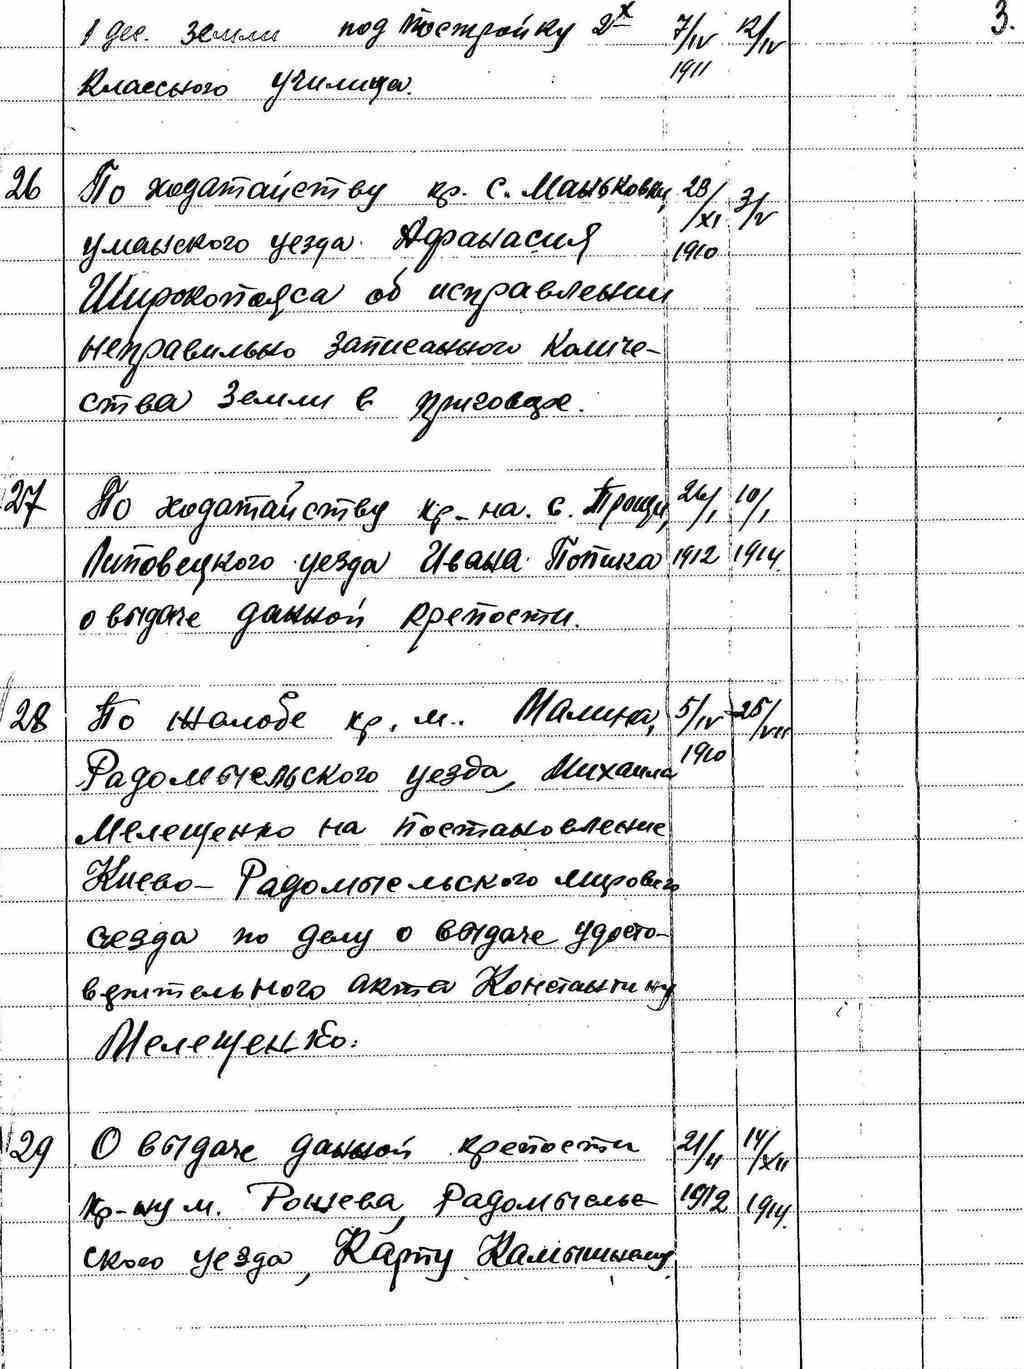 3.
1 дес. земли под постройку 2х 7/IV 12/IV
классного училища. 1911
26 По ходатайству кр. с. Маньковки, 28/XI 3/V
уманского уезда Афанасия 1910
Широкопояса об исправлении
неправильно записанного количе-
ства земли в приговоре.
27 По ходатайству кр-на. с. Трощи, 26/I 10/I
Липовецкого уезда Ивана Попика 1912 1914
о выдаче данной крепости.
28 По жалобе кр. м. Малина, 5/IV 25/VII
Радомысельского уезда, Михаила 1910
Мелещенко на постановление
Киево-Радомысельского мирового
сезда по делу о выдаче удосто-
верительного акта Константину
Мелещенко.
29 О выдаче данной крепости 21/II 14/XII
кр-ну м. Рожева, Радомысель- 1912 1914.
ского уезда, Карпу Камышному